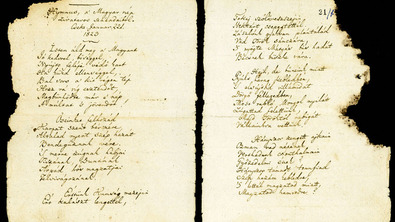 Hymnus, a' Magyar nép
zivataros századaiból
Cseke, Januar. 22d.
1823
Isten áldd meg a' Magyart
Jó kedvvel, bőséggel,
Nyújts feléje védő kart
Ha küzd ellenséggel;
Bal sors a' kit régen tép
Hozz rá víg esztendőt,
Megbűnhődte már e' nép
A' multat 's jövendőt!
Őseinket felhozád
Kárpát szent bérczére,
Általad nyert szép hazát
Bendegúznak vére.
'S merre zúgnak habjai
Tiszának, Dunának,
Árpád hős magzatjai
Felvirágozának.
Értünk Kunság mezein
Ért kalászt lengettél,
Tokaj szőlővesszein
Nektárt csepegtettél.
Zászlónk gyakran plántálád
Vad török sánczára,
'S nyögte Mátyás bús hadát
Bécsnek büszke vára.
Hajh, de bűneink miatt
Gyúlt harag kebledben,
'S elsújtád villámidat
Dörgő fellegedben,
Most rabló Mongol nyilát
Zúgattad felettünk,
Majd töröktől rabigát
Vállainkra vettünk.
Hányszor zengett ajkain
Ozman vad népének
Vert hadunk csonthalmain
Győzedelmi ének!
Hányszor támadt tenfiad
Szép hazám kebledre,
'S lettél magzatod miatt
Magzatod hamvvedre?